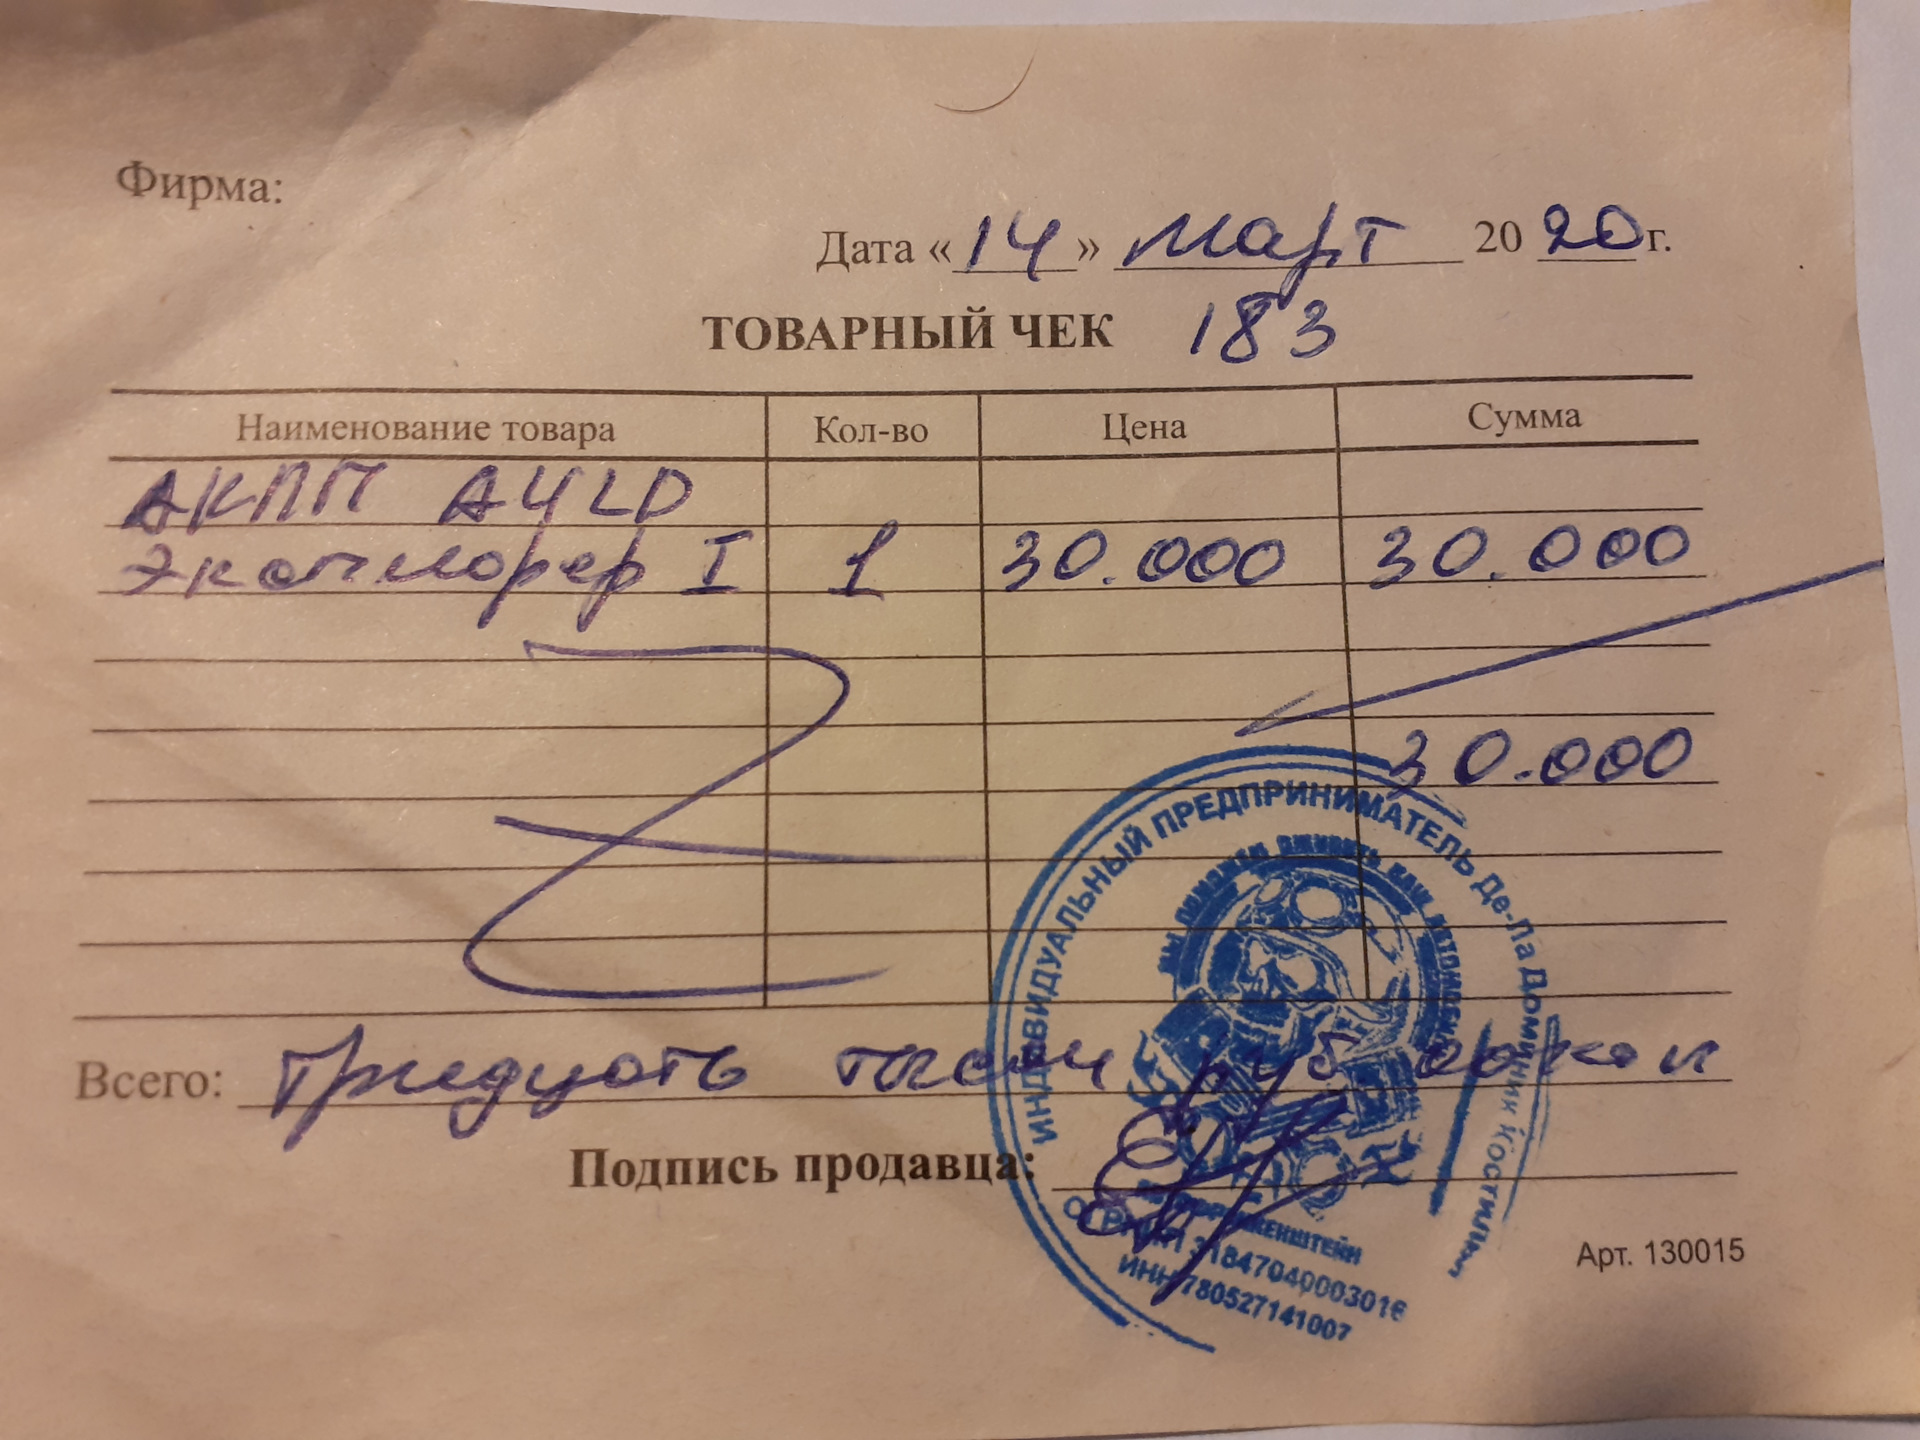 Фирма:
Дата «14» март 2020г.
ТОВАРНЫЙ ЧЕК 183
Наименование товара Кол-во Цена Сумма
АКПП A4LD
Эксплорер I 1 30.000 30.000
30.000
Всего: Тридцать тысяч руб оокоп
Подпись продавца:
Арт. 130015
ИНДИВИДУАЛЬНЫЙ ПРЕДПРИНИМАТЕЛЬ Де-Ла Доминик
ОГРНИП 31847040003016
ИНН 780527141007